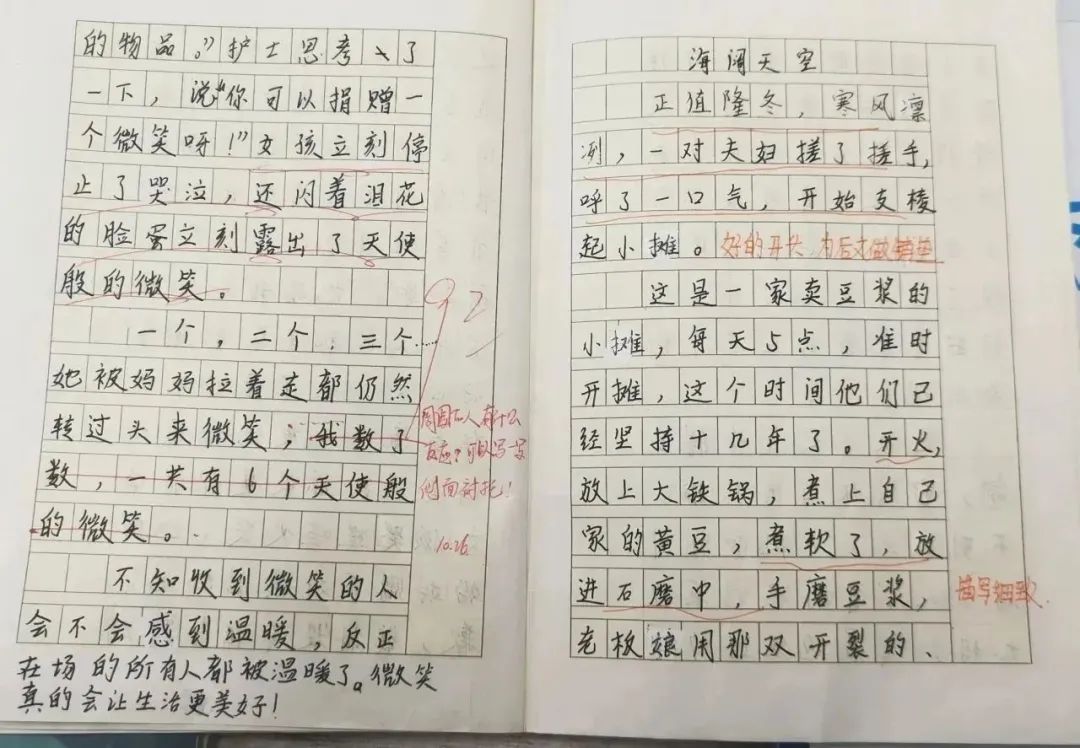 的物品。”护士思考了
一下，说“你可以捐赠一
个微笑呀！”女孩立刻停
止了哭泣，还闪着泪花
的脸蛋立刻露出了天使
般的微笑。
92
一个，二个，三个……
她被妈妈拉着走都仍然
转过头来微笑；我数了
数，一共有6个天使般
的微笑。
周围的人有什么
反应？可以写一写
侧面衬托！
10.26
不知收到微笑的人
会不会感到温暖，反正
在场的所有人都被温暖了。微笑
真的会让生活更美好！
海阔天空
正值隆冬，寒风凛
冽，一对夫妇搓了搓手，
呼了一口气，开始支棱
起小摊。好的开头，为后文做铺垫
这是一家卖豆浆的
小摊，每天5点，准时
开摊，这个时间他们已
经坚持十几年了。开火，
放上大铁锅，煮上自己
家的黄豆，煮软了，放
进石磨中，手磨豆浆，
描写细致.
老板娘用那双开裂的、